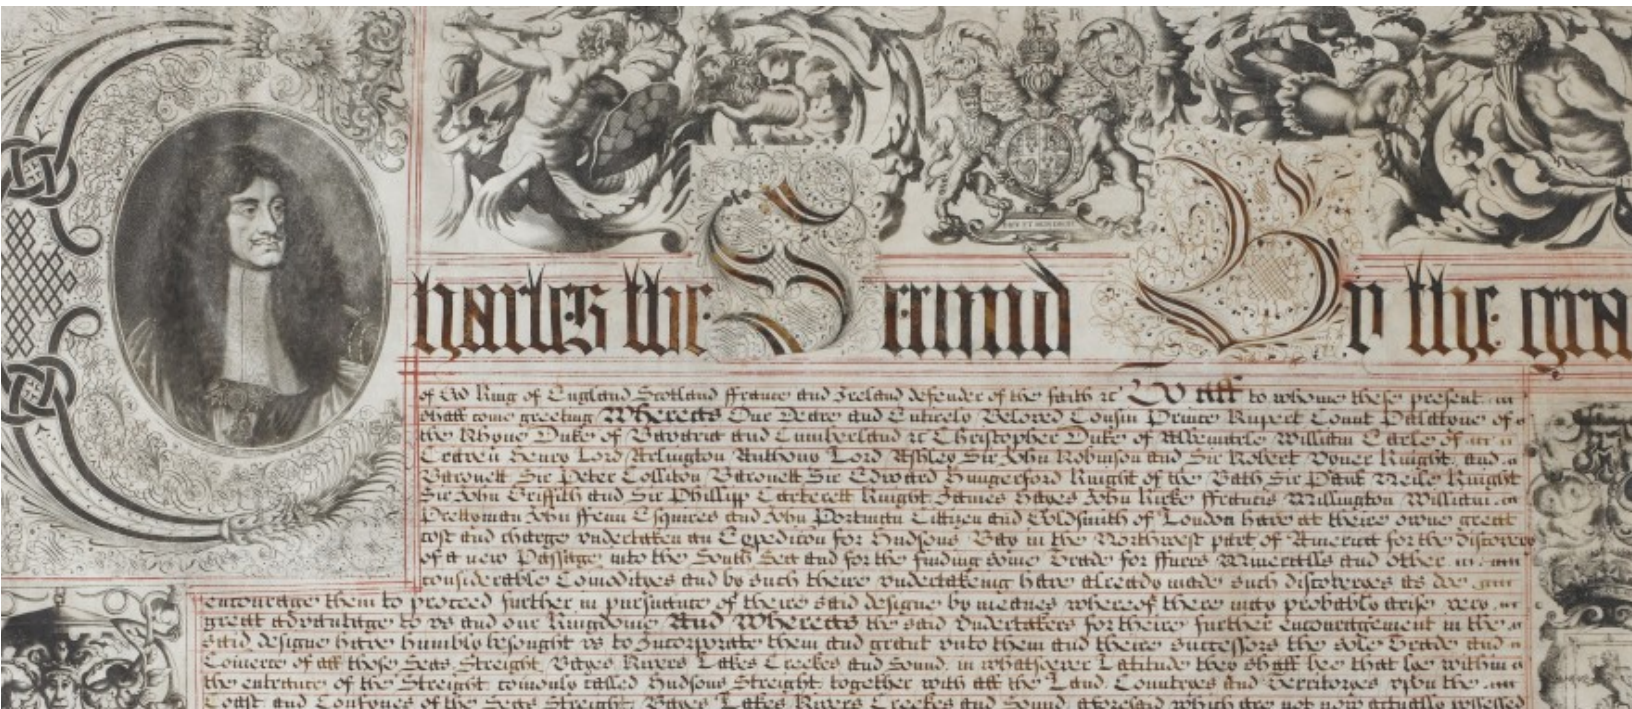 C R
DIEU ET MON DROIT
Charles the Second By the gra
of God King of England Scotland ffrance and Ireland defender of the faith &c To All to whome these presentes
shall come greeting Whereas Our Deare and Entirely Beloved Cousin Prince Rupert Count Palatyne of
the Rhyne Duke of Bavaria and Cumberland &c Christopher Duke of Albemarle William Earle of
Craven Henry Lord Arlington Anthony Lord Ashley Sir John Robinson and Sir Robert Vyner Knightes and
Baronettes Sir Peter Colliton Baronett Sir Edward Hungerford Knight of the Bath Sir Paul Neile Knight
Sir John Griffith and Sir Phillipp Carterett Knightes James Hayes John Kirke ffrancis Millington William
Prettyman John ffenn Esquires and John Portman Cittizen and Goldsmith of London have at theire owne great
cost and charge undertaken an Expedicon for Hudsons Bay in the Northwest part of America for the discovery
of a new Passage into the South Sea and for the finding some Trade for ffurrs Mineralls and other
considerable Comodityes and by such theire undertakeing have already made such discoveryes as doe
encourage them to proceed further in pursuance of theire said designe by meanes whereof there may probably arise very
great advantage to us and our Kingdome And Whereas the said Undertakers for theire further encouragement in the
said designe have humbly besought us to Incorporate them and grant unto them and theire successors the sole Trade and
Comerce of all those Seas Streightes Bayes Rivers Lakes Creekes and Soundes in whatsoever Latitude they shall bee that lye within
the entrance of the Streightes comonly called Hudsons Streightes together with all the Landes Countryes and Territoryes upon the
Coastes and Confynes of the Seas Streightes Bayes Lakes Rivers Creekes and Soundes aforesaid which are not now actually possessed